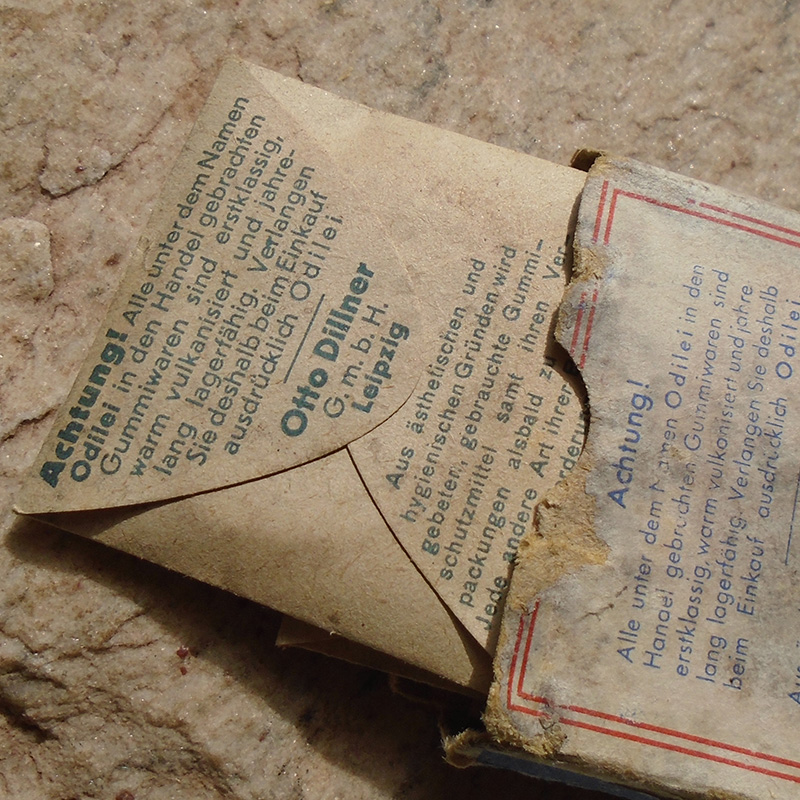 Achtung! Alle unter dem Namen
Odilei in den Handel gebrachten
Gummiwaren sind erstklassig,
warm vulkanisiert und jahre-
lang lagerfähig. Verlangen
Sie deshalb beim Einkauf
ausdrücklich Odilei.
Otto Dillner
G. m. b. H.
Leipzig
Aus ästhetischen und
hygienischen Gründen wird
gebeten, gebrauchte Gummi-
schutzmittel samt ihren Ver-
packungen alsbald
Jede andere Art ihrer
Achtung!
Alle unter dem Namen Odilei in den
Handel gebrachten Gummiwaren sind
erstklassig, warm vulkanisiert und jahre
lang lagerfähig. Verlangen Sie deshalb
beim Einkauf ausdrücklich Odilei